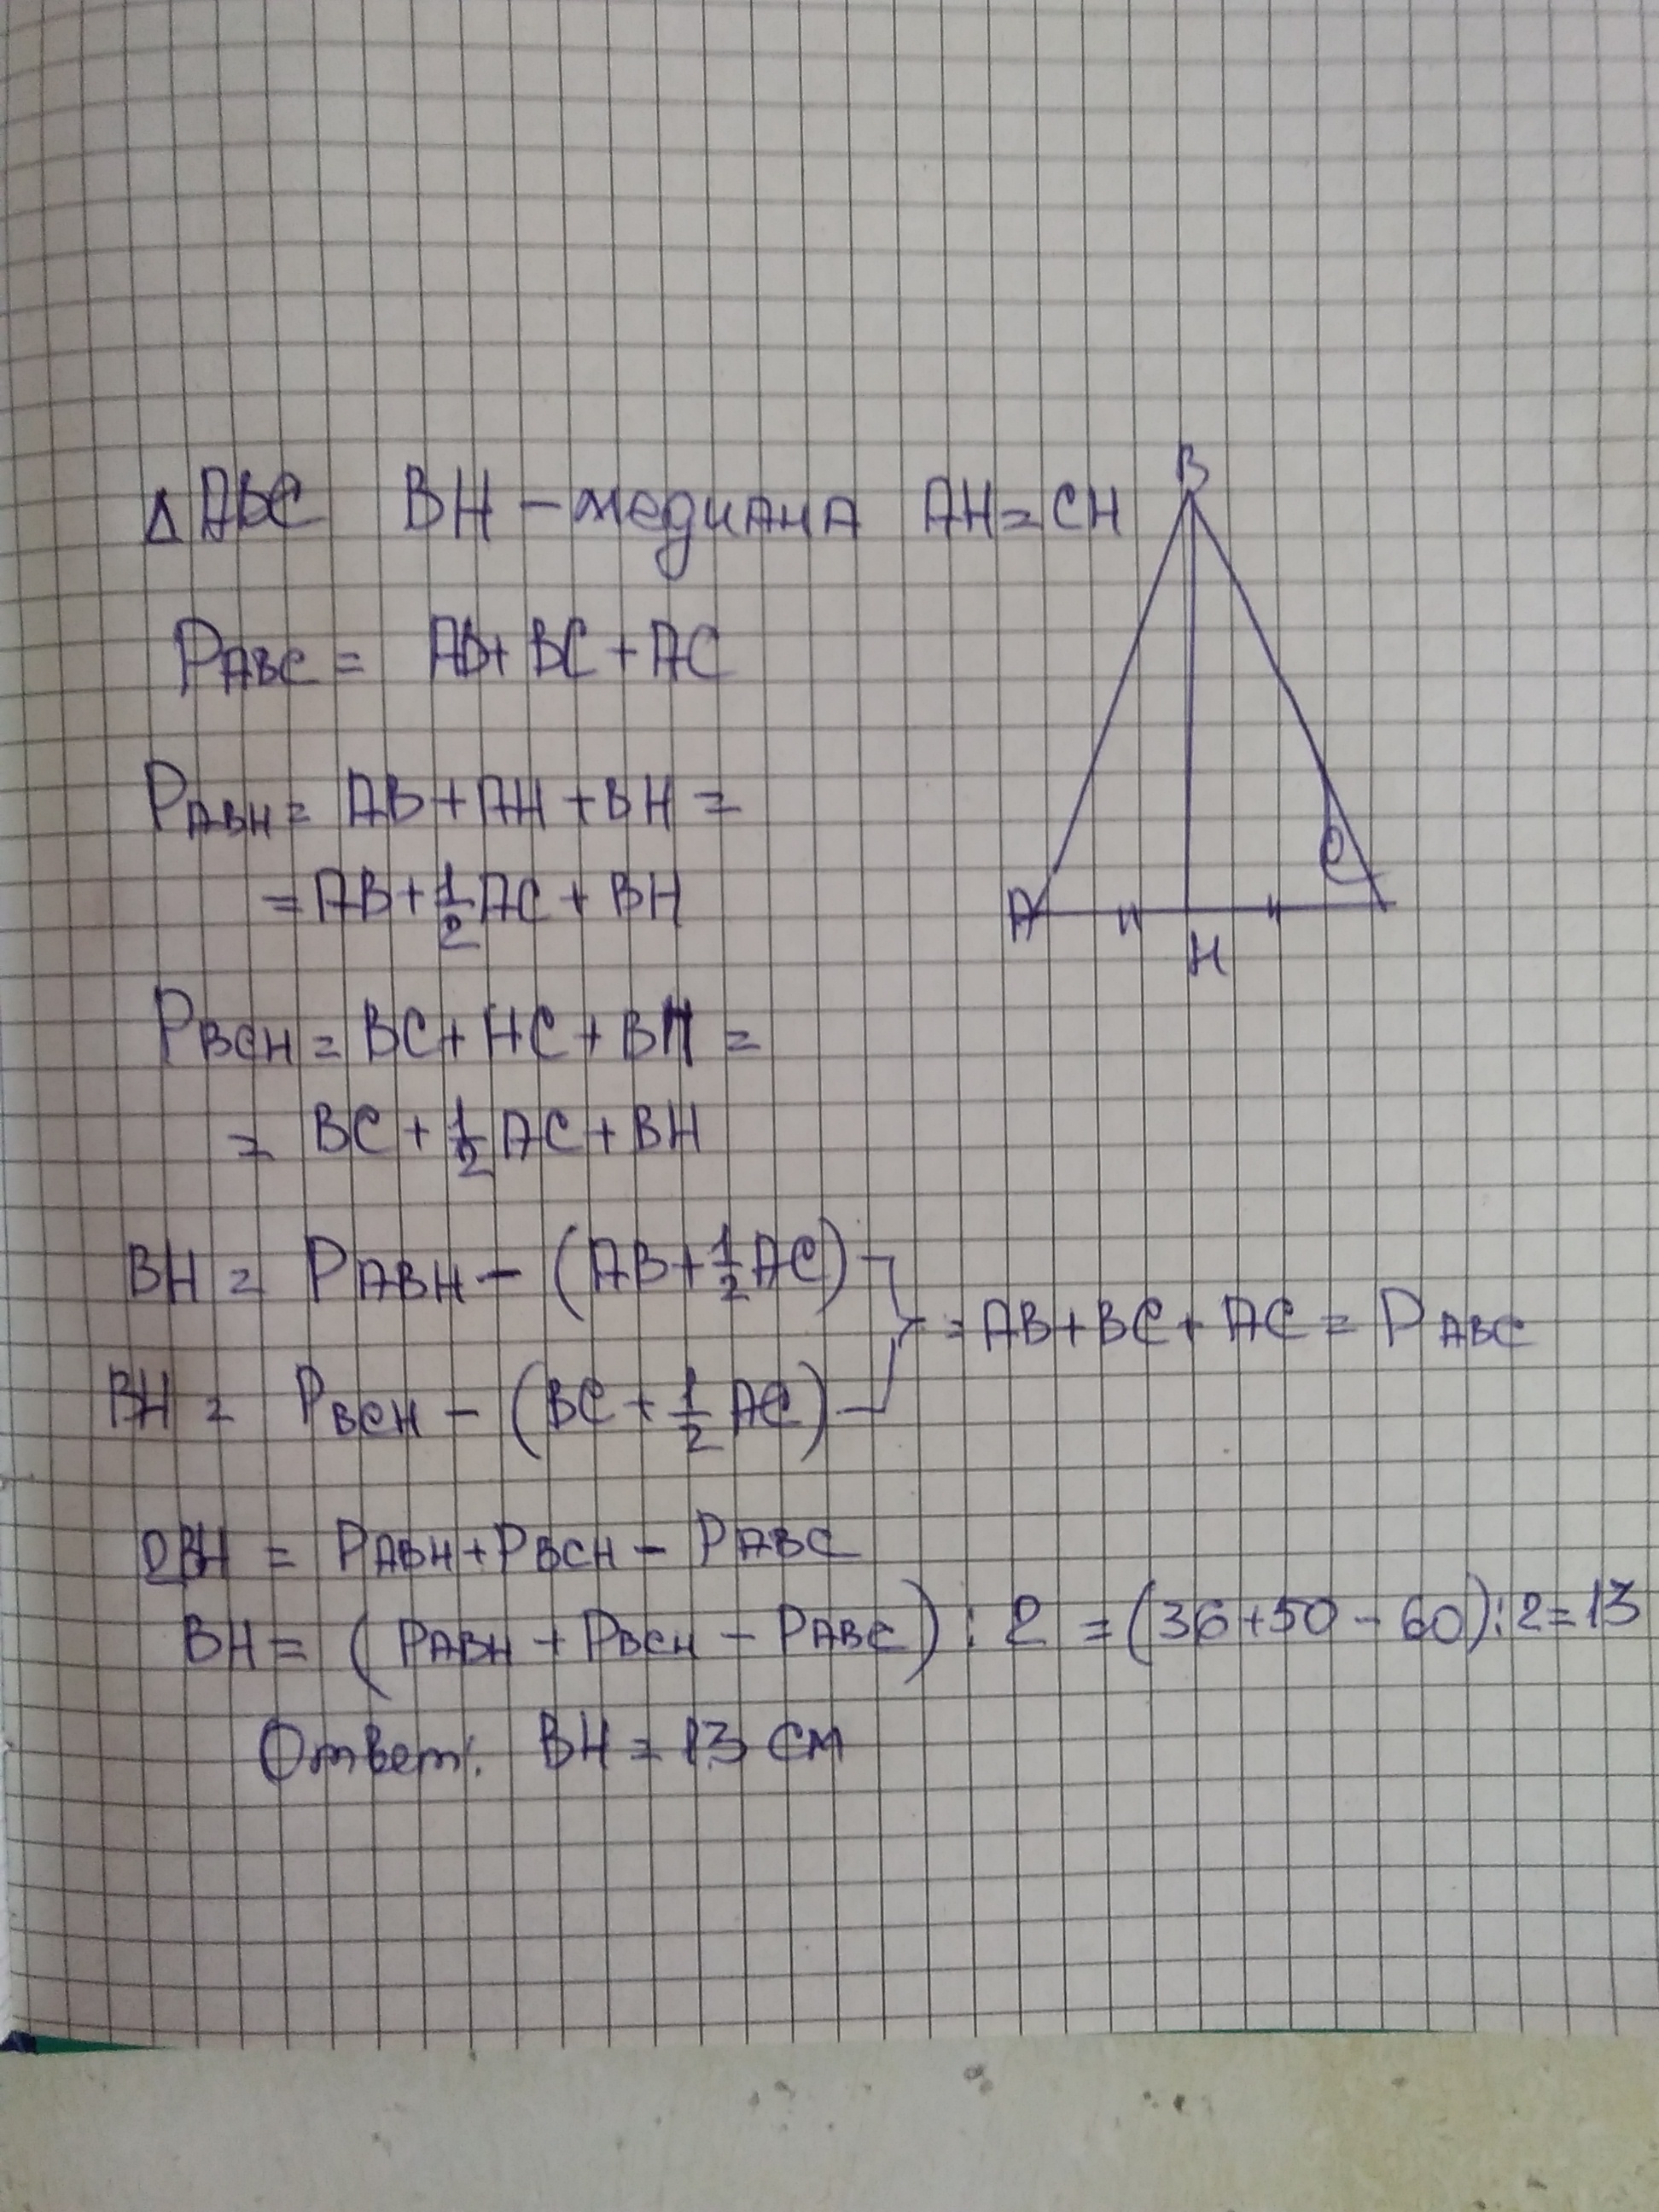 Δ ABC BH - медиана AH = CH
B
P ABC = AB + BC + AC
P ABH = AB + AH + BH =
= AB + 1/2 AC + BH
C
A
H
P BCH = BC + HC + BH =
= BC + 1/2 AC + BH
BH = P ABH - (AB + 1/2 AC)
= AB + BC + AC = P ABC
BH = P BCH - (BC + 1/2 AC)
2BH = P ABH + P BCH - P ABC
BH = (P ABH + P BCH - P ABC) : 2 = (36 + 50 - 60) : 2 = 13
Ответ: BH = 13 см